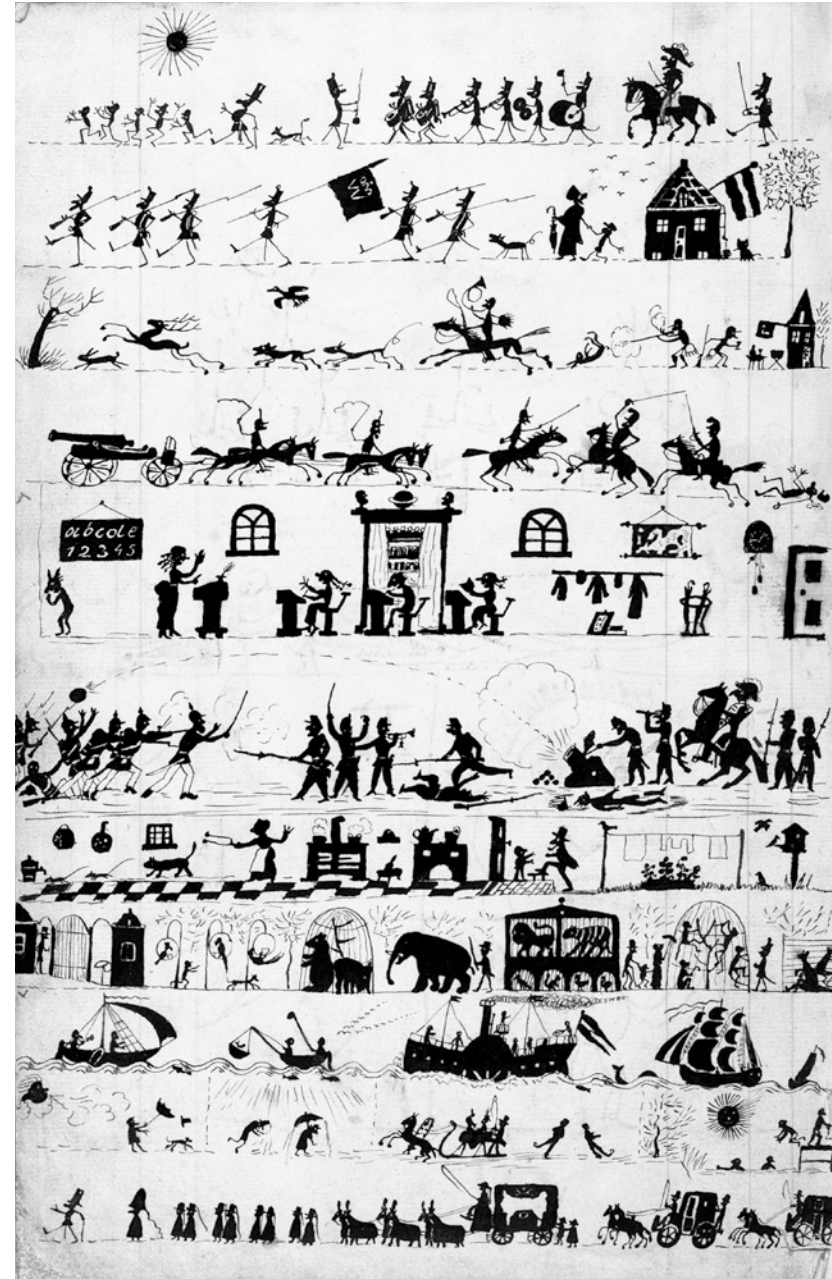 abcde
1 2 3 4 5